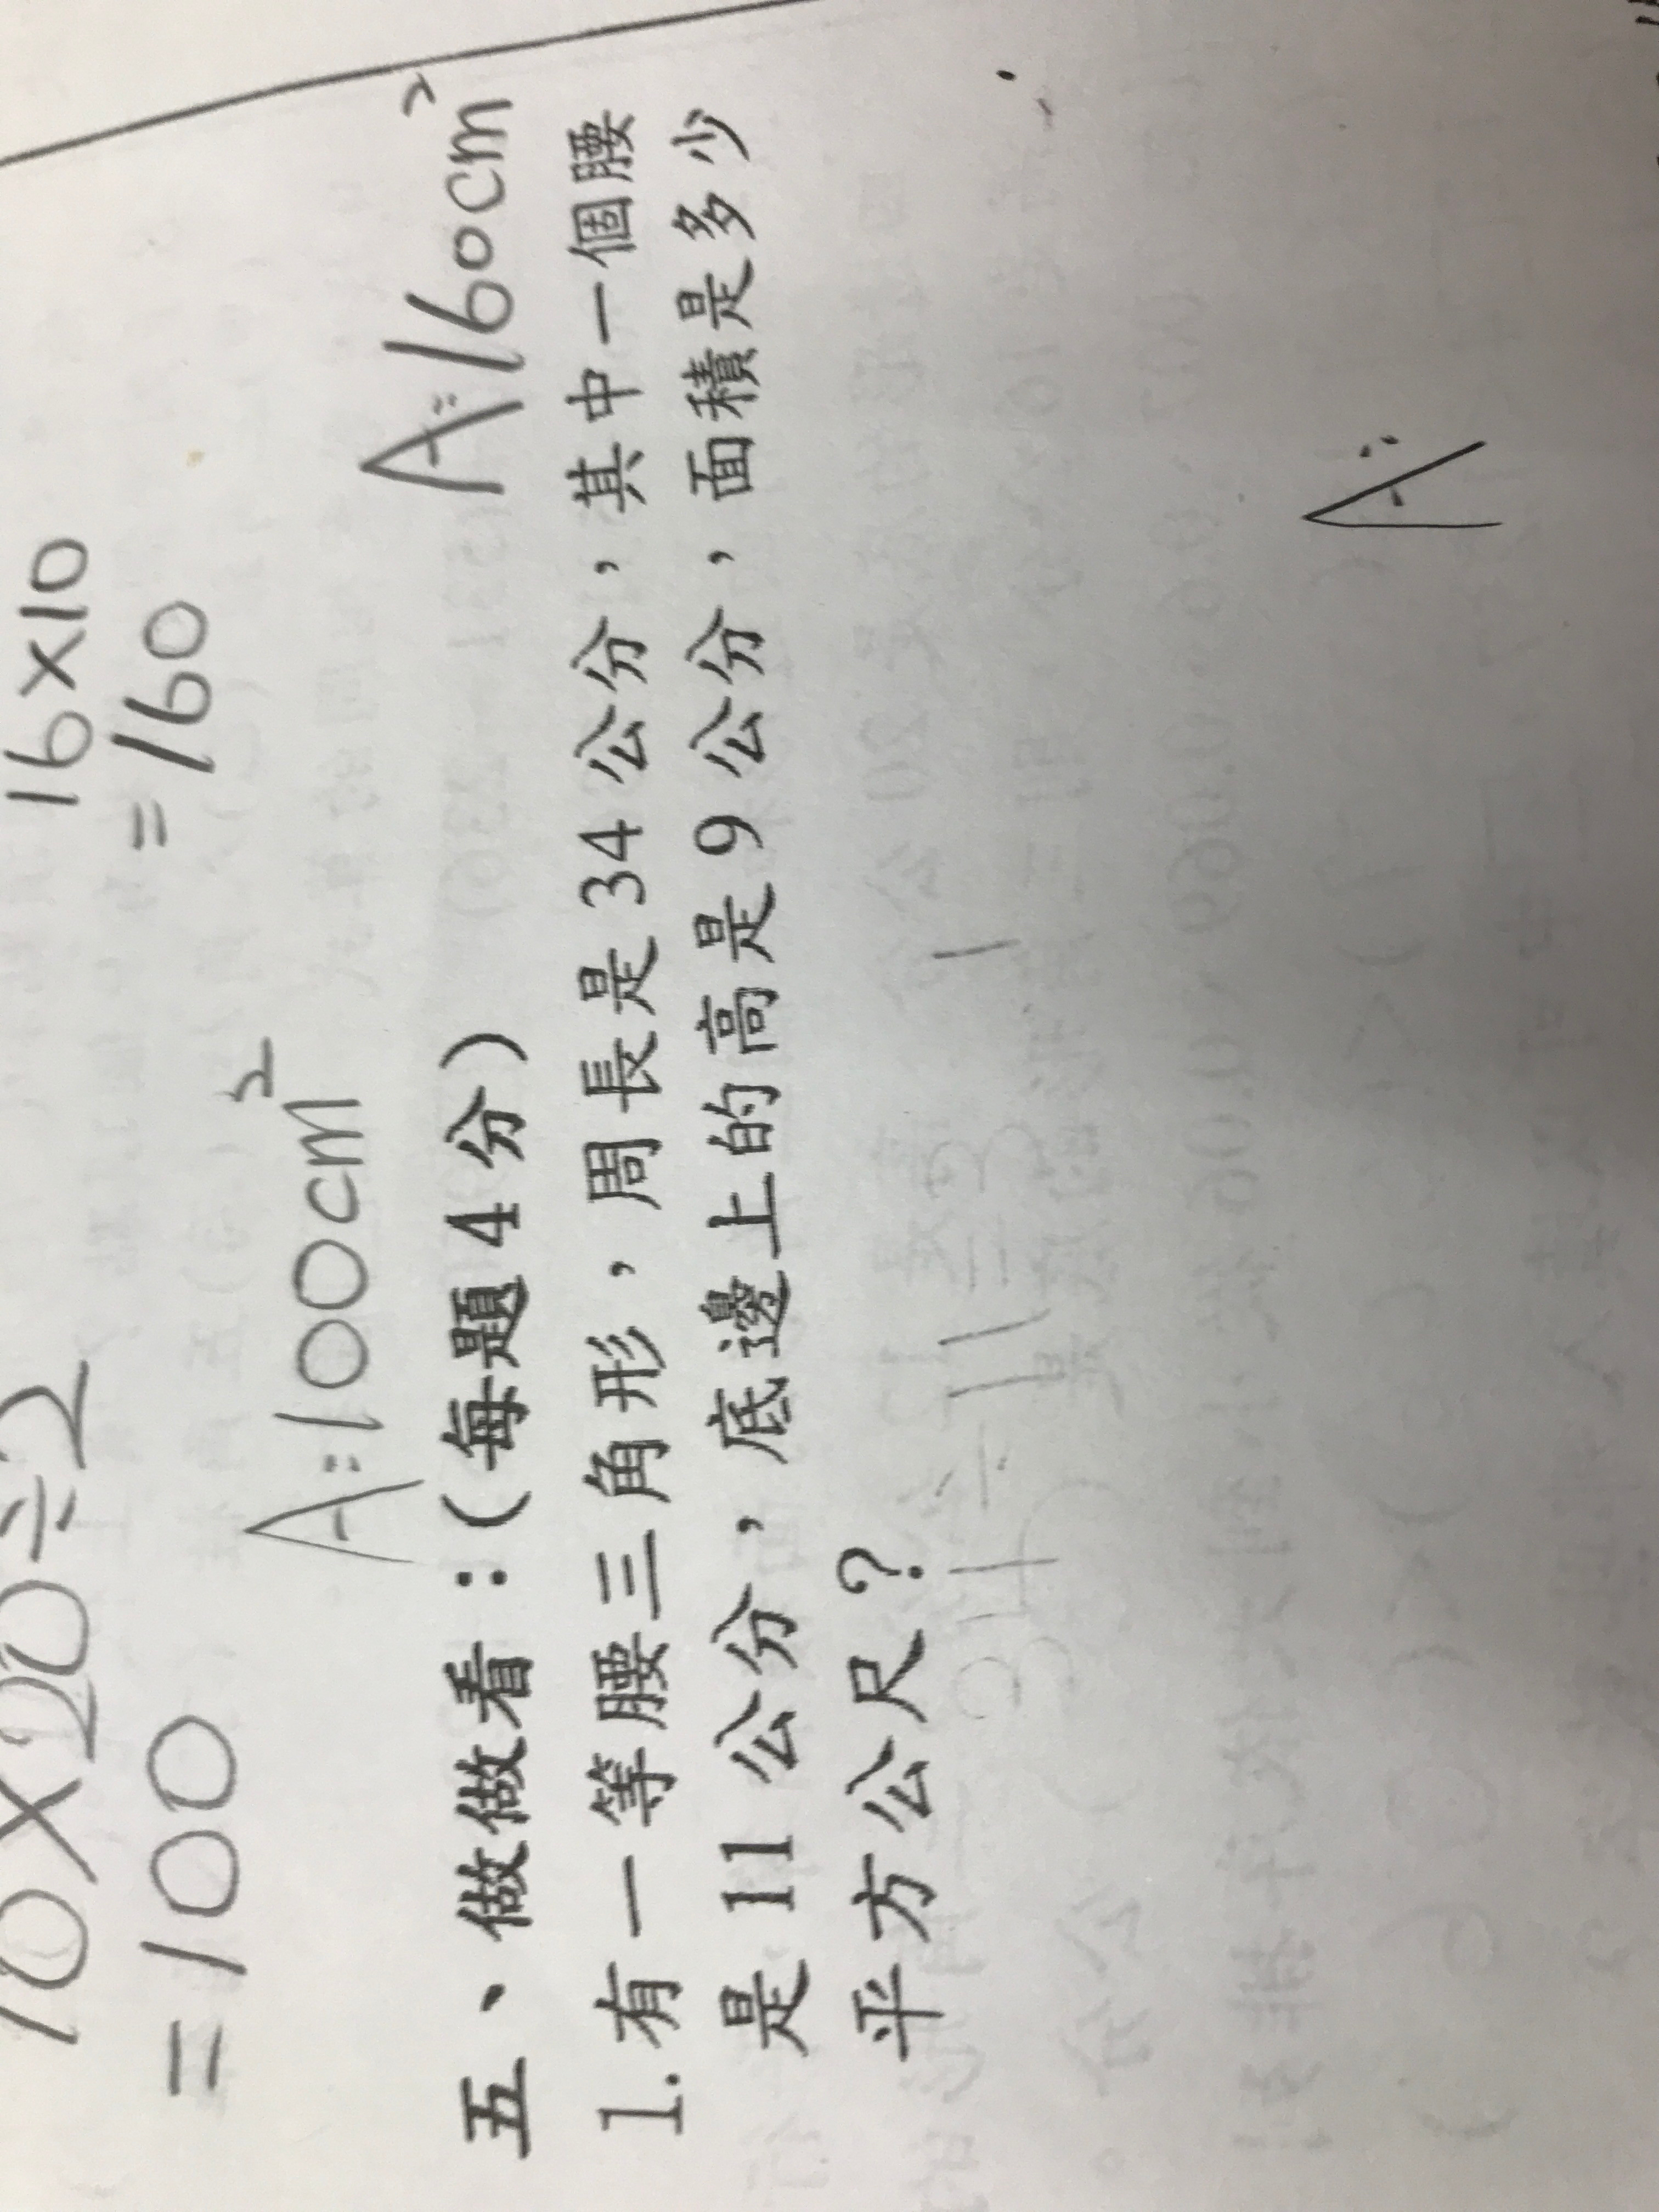 10×20÷2
=100
A:100cm²
16×10
=160
A:160cm²
五、做做看：(每題4分)
1.有一等腰三角形，周長是34公分，其中一個腰
是11公分，底邊上的高是9公分，面積是多少
平方公尺？
A: